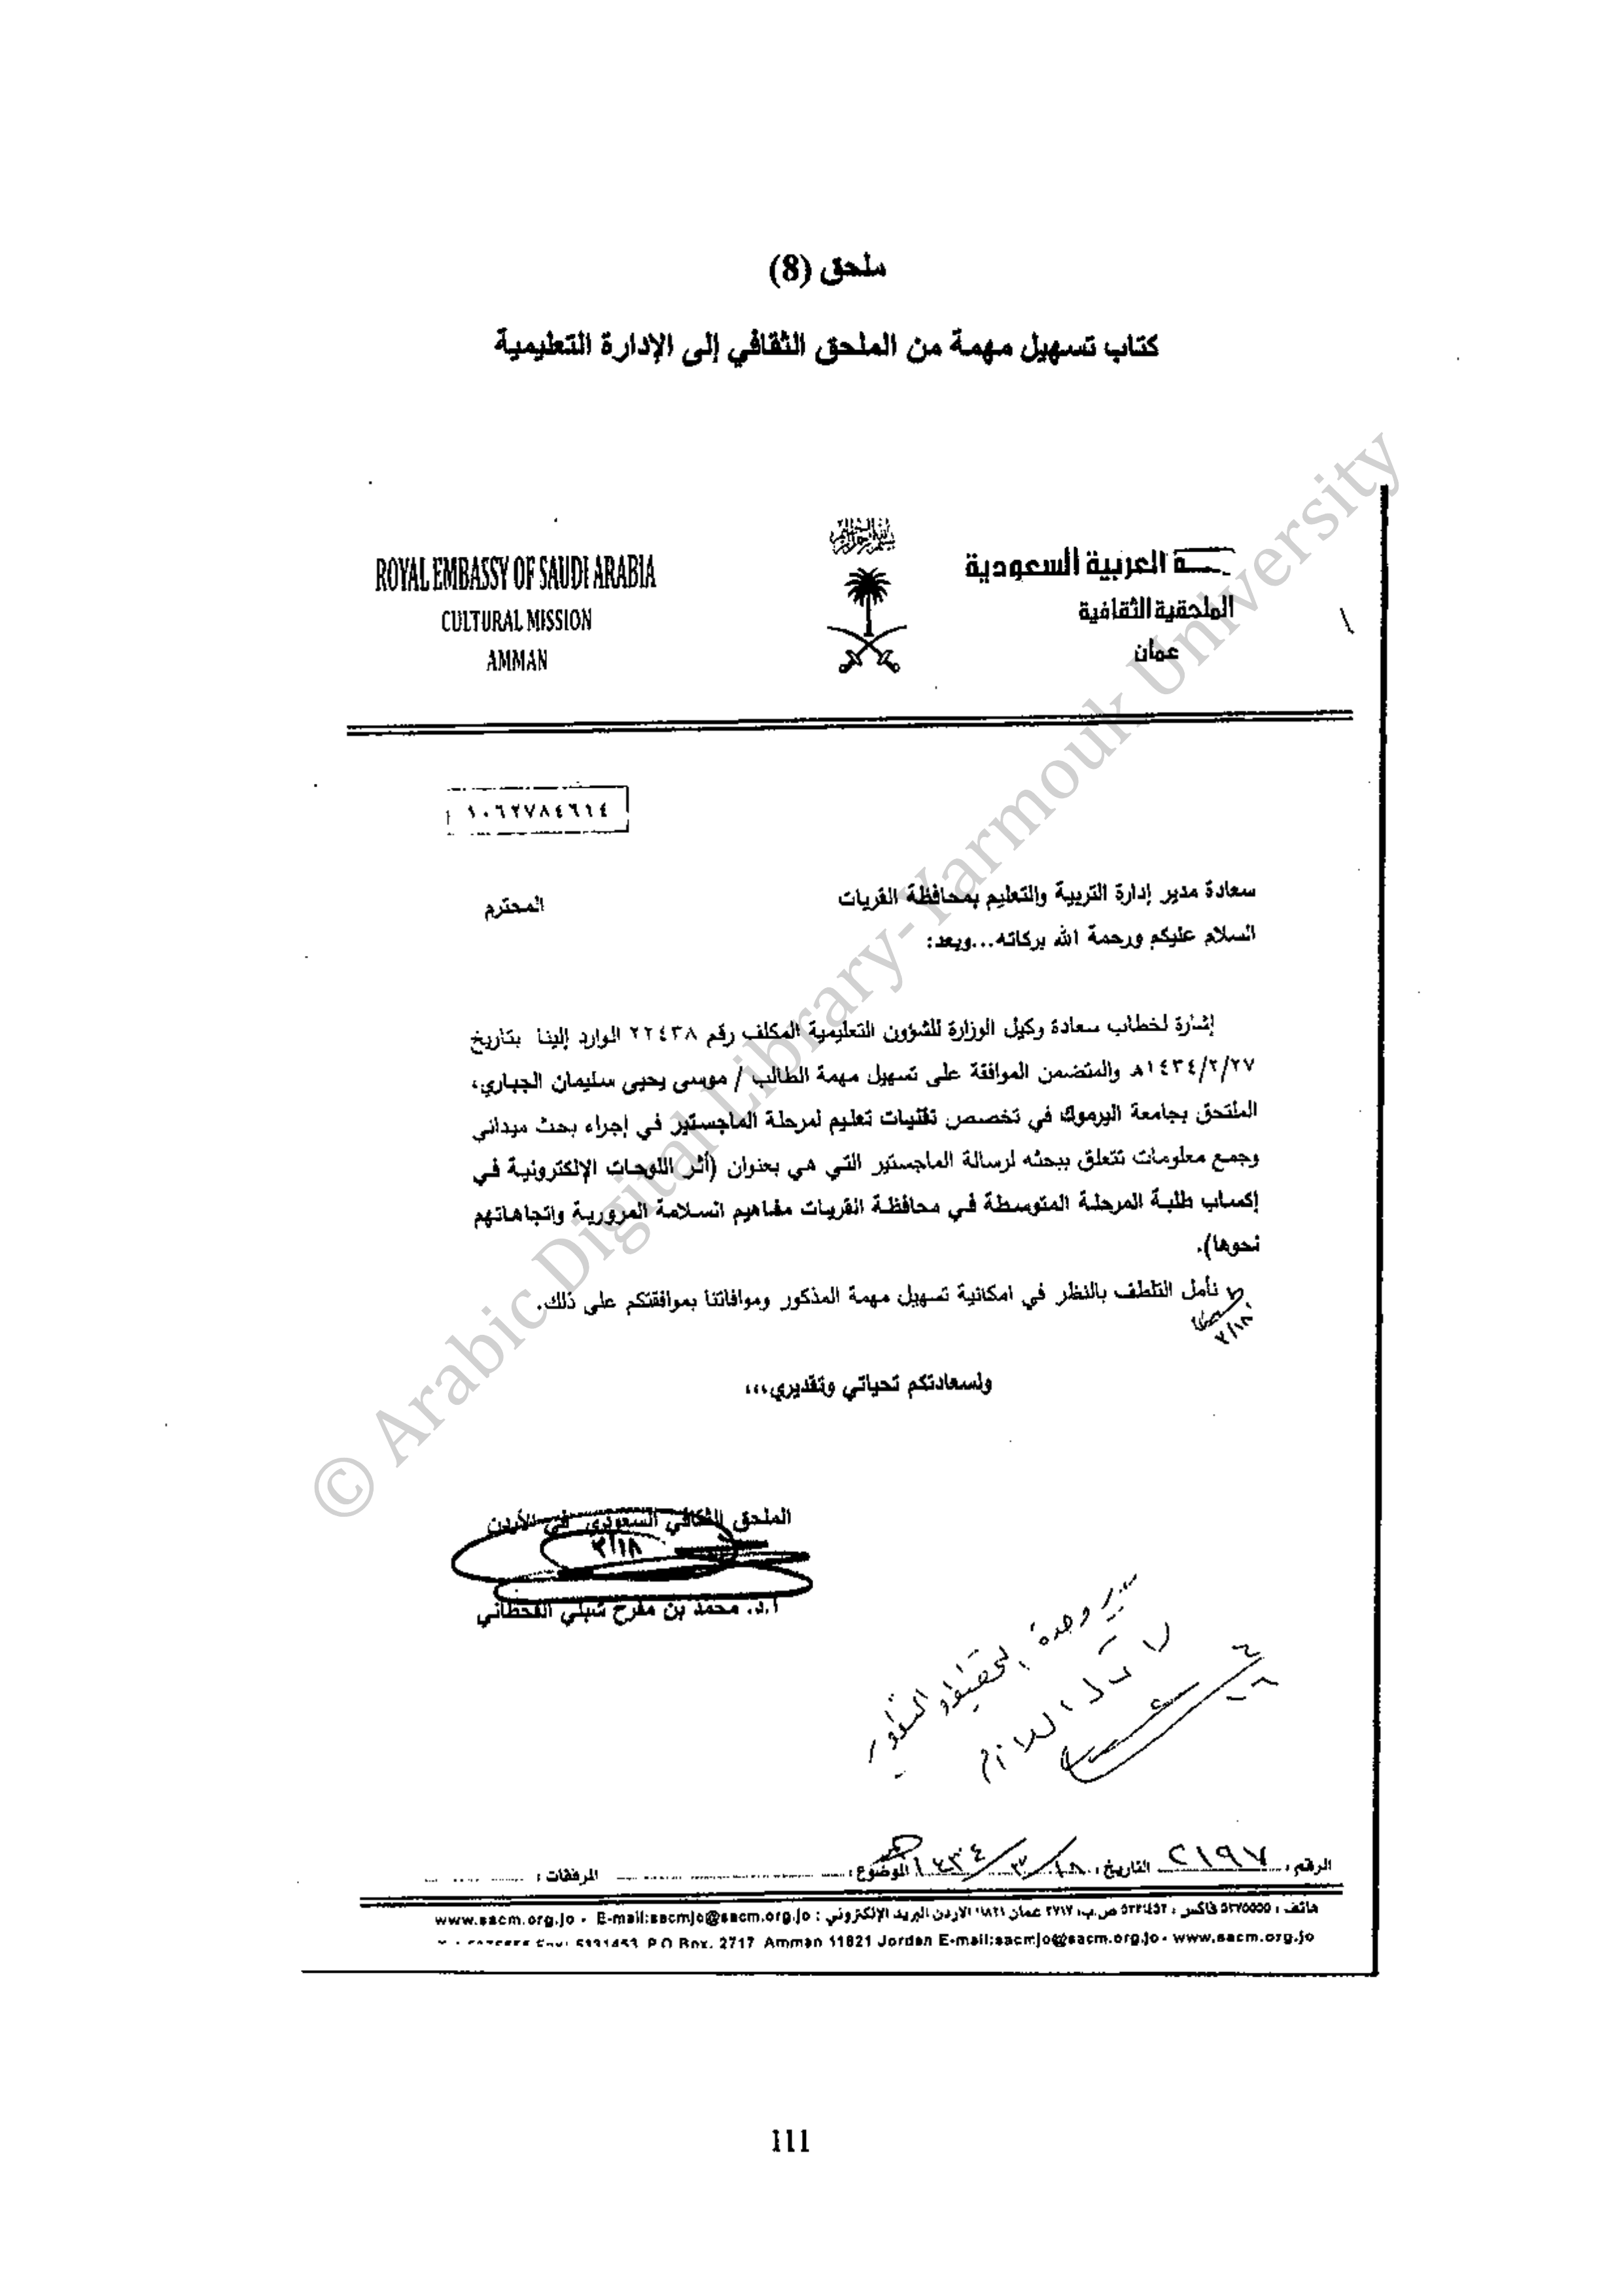 ملحق (8)
كتاب تسهيل مهمة من الملحق الثقافي إلى الإدارة التعليمية
ROYAL EMBASSY OF SAUDI ARABIA
CULTURAL MISSION
AMMAN
العربية السعودية
الملحقية الثقافية
عمان
١٠٦٢٧٨٤٦١٤
سعادة مدير إدارة التربية والتعليم بمحافظة القريات المحترم
السلام عليكم ورحمة الله بركاته...وبعد:
إشارة لخطاب سعادة وكيل الوزارة للشؤون التعليمية المكلف رقم ٢٢٤٣٨ الوارد إلينا بتاريخ
١٤٣٤/٢/٢٧هـ والمتضمن الموافقة على تسهيل مهمة الطالب / موسى يحيى سليمان الجباري،
الملتحق بجامعة اليرموك في تخصص تقنيات تعليم لمرحلة الماجستير في إجراء بحث ميداني
وجمع معلومات تتعلق ببحثه لرسالة الماجستير التي هي بعنوان (أثر اللوحات الإلكترونية في
إكساب طلبة المرحلة المتوسطة في محافظة القريات مفاهيم السلامة المرورية واتجاهاتهم
نحوها).
نأمل التلطف بالنظر في امكانية تسهيل مهمة المذكور وموافاتنا بموافقتكم على ذلك.
٣/١٨
ولسعادتكم تحياتي وتقديري،،،
الملحق الثقافي السعودي في الأردن
٣/١٨
أ.د. محمد بن مفرح شبلي القحطاني
وحدة التخطيط والتطوير
اللازم
الرقم: ٢١٩٧ التاريخ: ١٨/٣/١٤٣٤ الموضوع: المرفقات:
فاكس: ص.ب: ٢٧١٧ عمان ١١٨٢١ الاردن البريد الإلكتروني: www.sacm.org.jo - E-mail:sacmjo@sacm.org.jo
P.O Box. 2717 Amman 11821 Jordan E-mail:sacmjo@sacm.org.jo - www.sacm.org.jo
© Arabic Digital Library-Yarmouk University
111